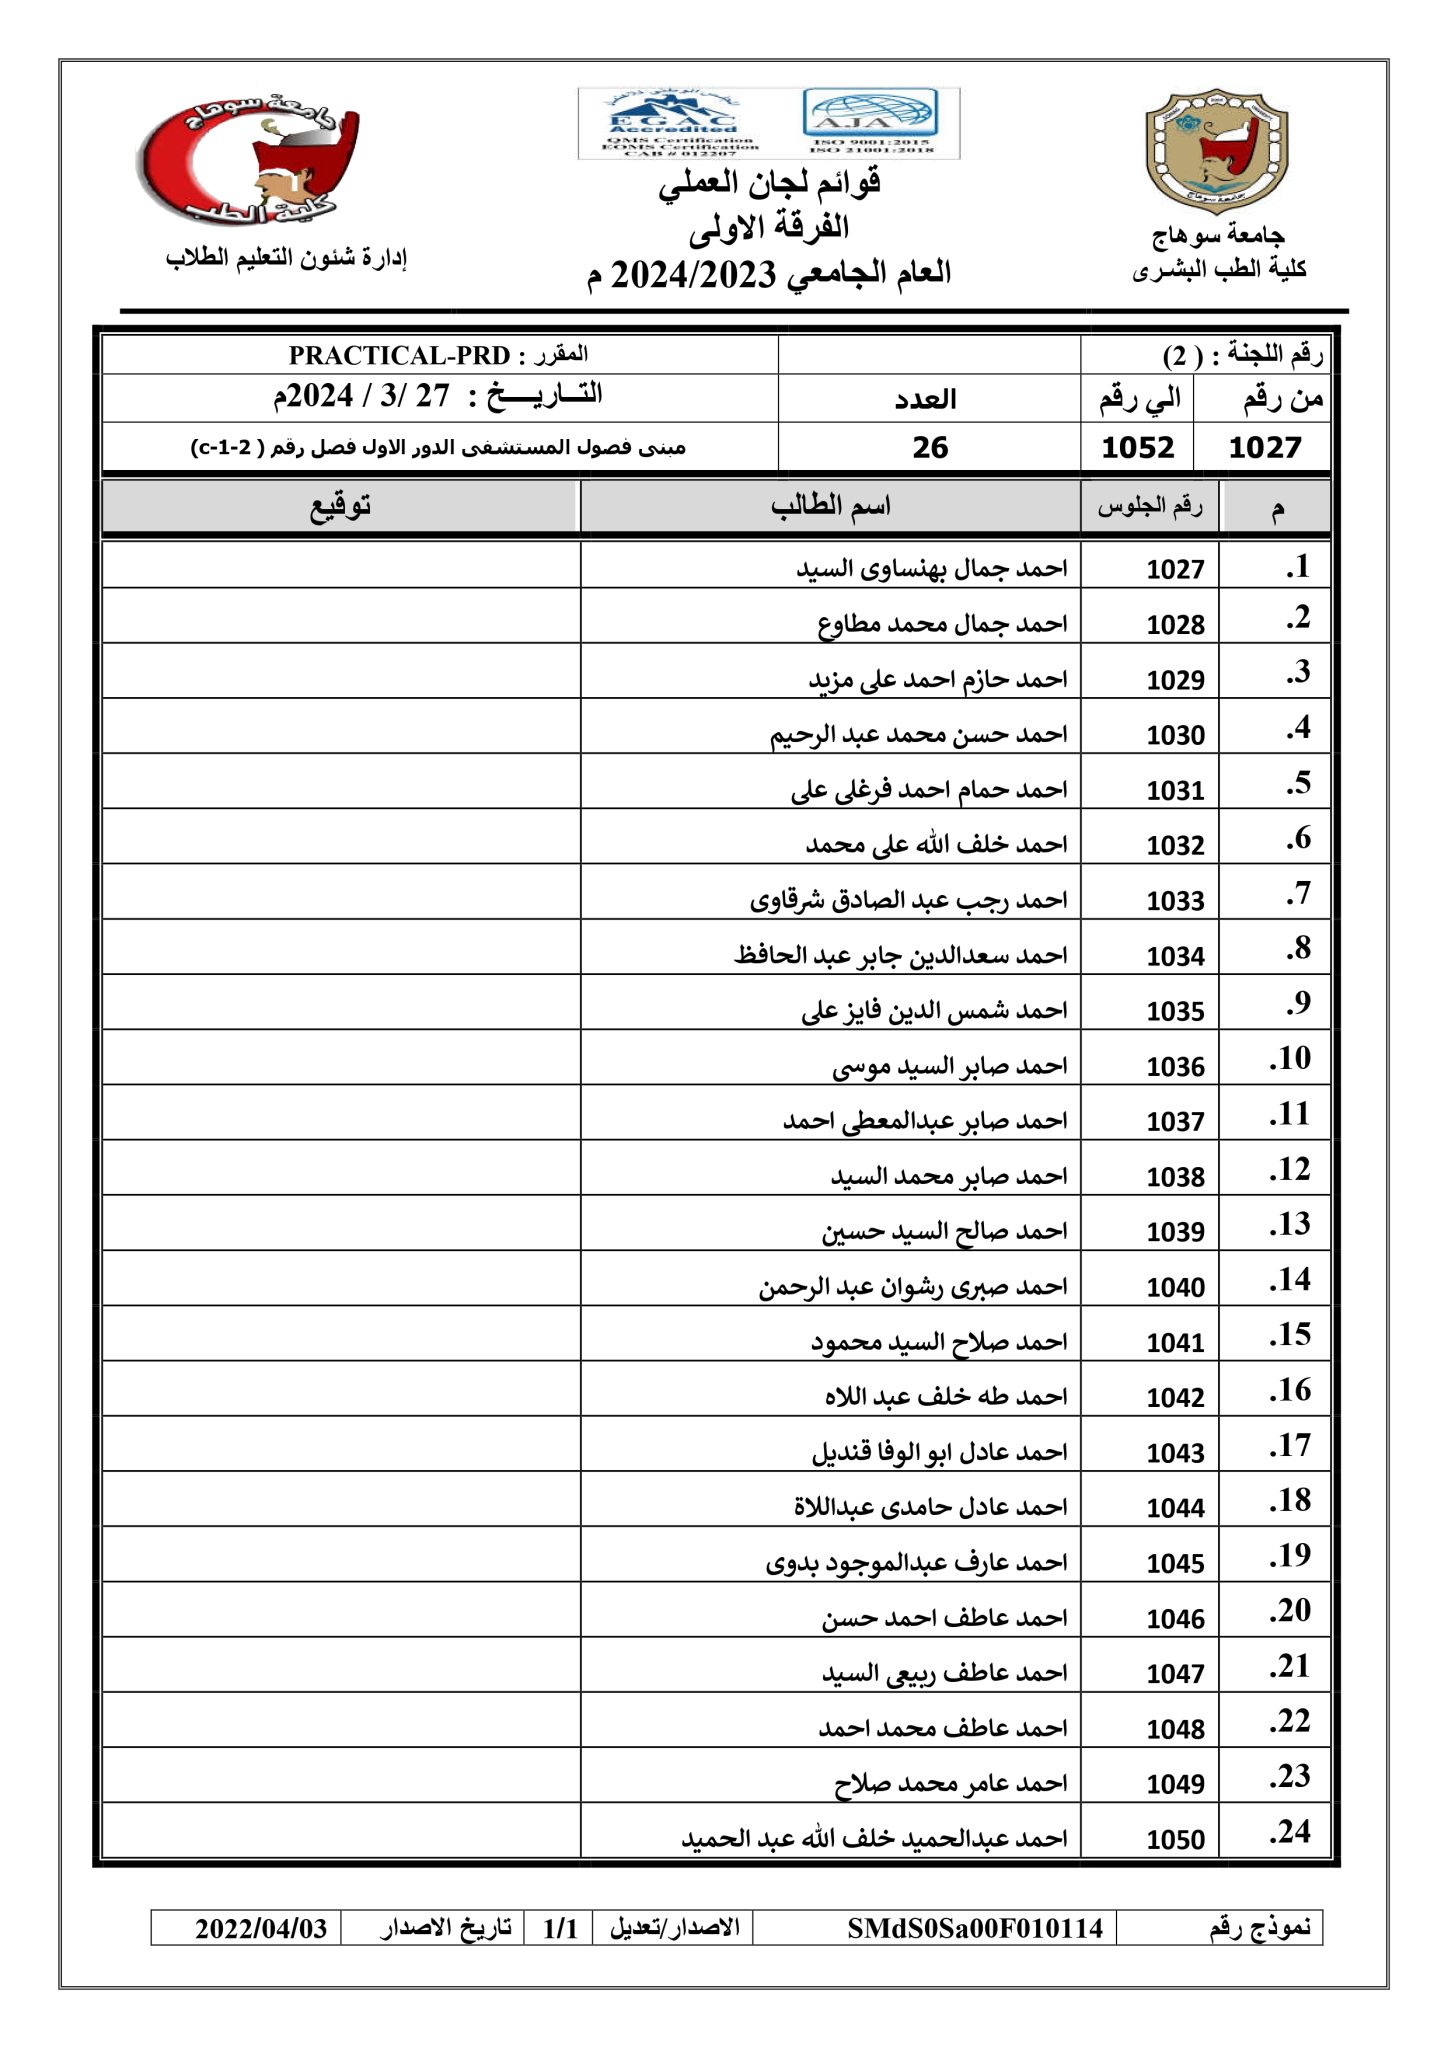 جامعة سوهاج
كلية الطب
إدارة شئون التعليم الطلاب
EGAC
Accredited
QMS Certification
EOMS Certification
CAB # 012207
AJA
ISO 9001:2015
ISO 21001:2018
قوائم لجان العملي
الفرقة الاولى
العام الجامعي 2024/2023 م
جامعة سوهاج
جامعة سوهاج
كلية الطب البشرى
رقم اللجنة : ( 2) المقرر : PRACTICAL-PRD
من رقم الي رقم العدد التـــاريـــــخ : 27 /3 / 2024م
1027 1052 26 مبنى فصول المستشفى الدور الاول فصل رقم ( c-1-2)
م رقم الجلوس اسم الطالب توقيع
1. 1027 احمد جمال بهنساوى السيد
2. 1028 احمد جمال محمد مطاوع
3. 1029 احمد حازم احمد على مزيد
4. 1030 احمد حسن محمد عبد الرحيم
5. 1031 احمد حمام احمد فرغلى على
6. 1032 احمد خلف الله على محمد
7. 1033 احمد رجب عبد الصادق شرقاوى
8. 1034 احمد سعدالدين جابر عبد الحافظ
9. 1035 احمد شمس الدين فايز على
10. 1036 احمد صابر السيد موسى
11. 1037 احمد صابر عبدالمعطى احمد
12. 1038 احمد صابر محمد السيد
13. 1039 احمد صالح السيد حسين
14. 1040 احمد صبرى رشوان عبد الرحمن
15. 1041 احمد صلاح السيد محمود
16. 1042 احمد طه خلف عبد اللاه
17. 1043 احمد عادل ابو الوفا قنديل
18. 1044 احمد عادل حامدى عبداللاة
19. 1045 احمد عارف عبدالموجود بدوى
20. 1046 احمد عاطف احمد حسن
21. 1047 احمد عاطف ربيعى السيد
22. 1048 احمد عاطف محمد احمد
23. 1049 احمد عامر محمد صلاح
24. 1050 احمد عبدالحميد خلف الله عبد الحميد
نموذج رقم SMdS0Sa00F010114 الاصدار/تعديل 1/1 تاريخ الاصدار 2022/04/03